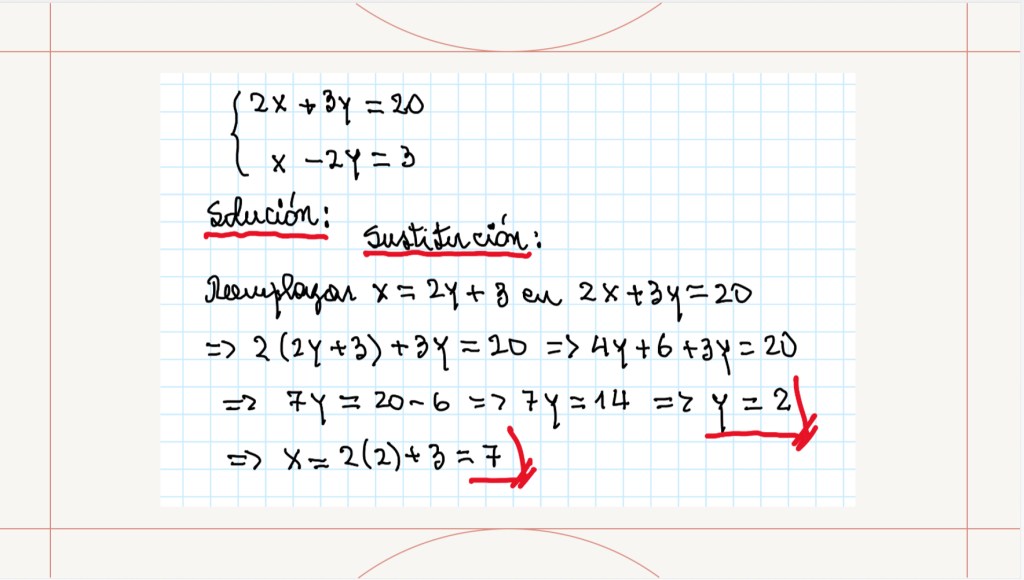 2x + 3y = 20
x - 2y = 3
Solución:
Sustitución:
Reemplazar x = 2y + 3 en 2x + 3y = 20
=> 2(2y + 3) + 3y = 20 => 4y + 6 + 3y = 20
=> 7y = 20 - 6 => 7y = 14 => y = 2
=> x = 2(2) + 3 = 7